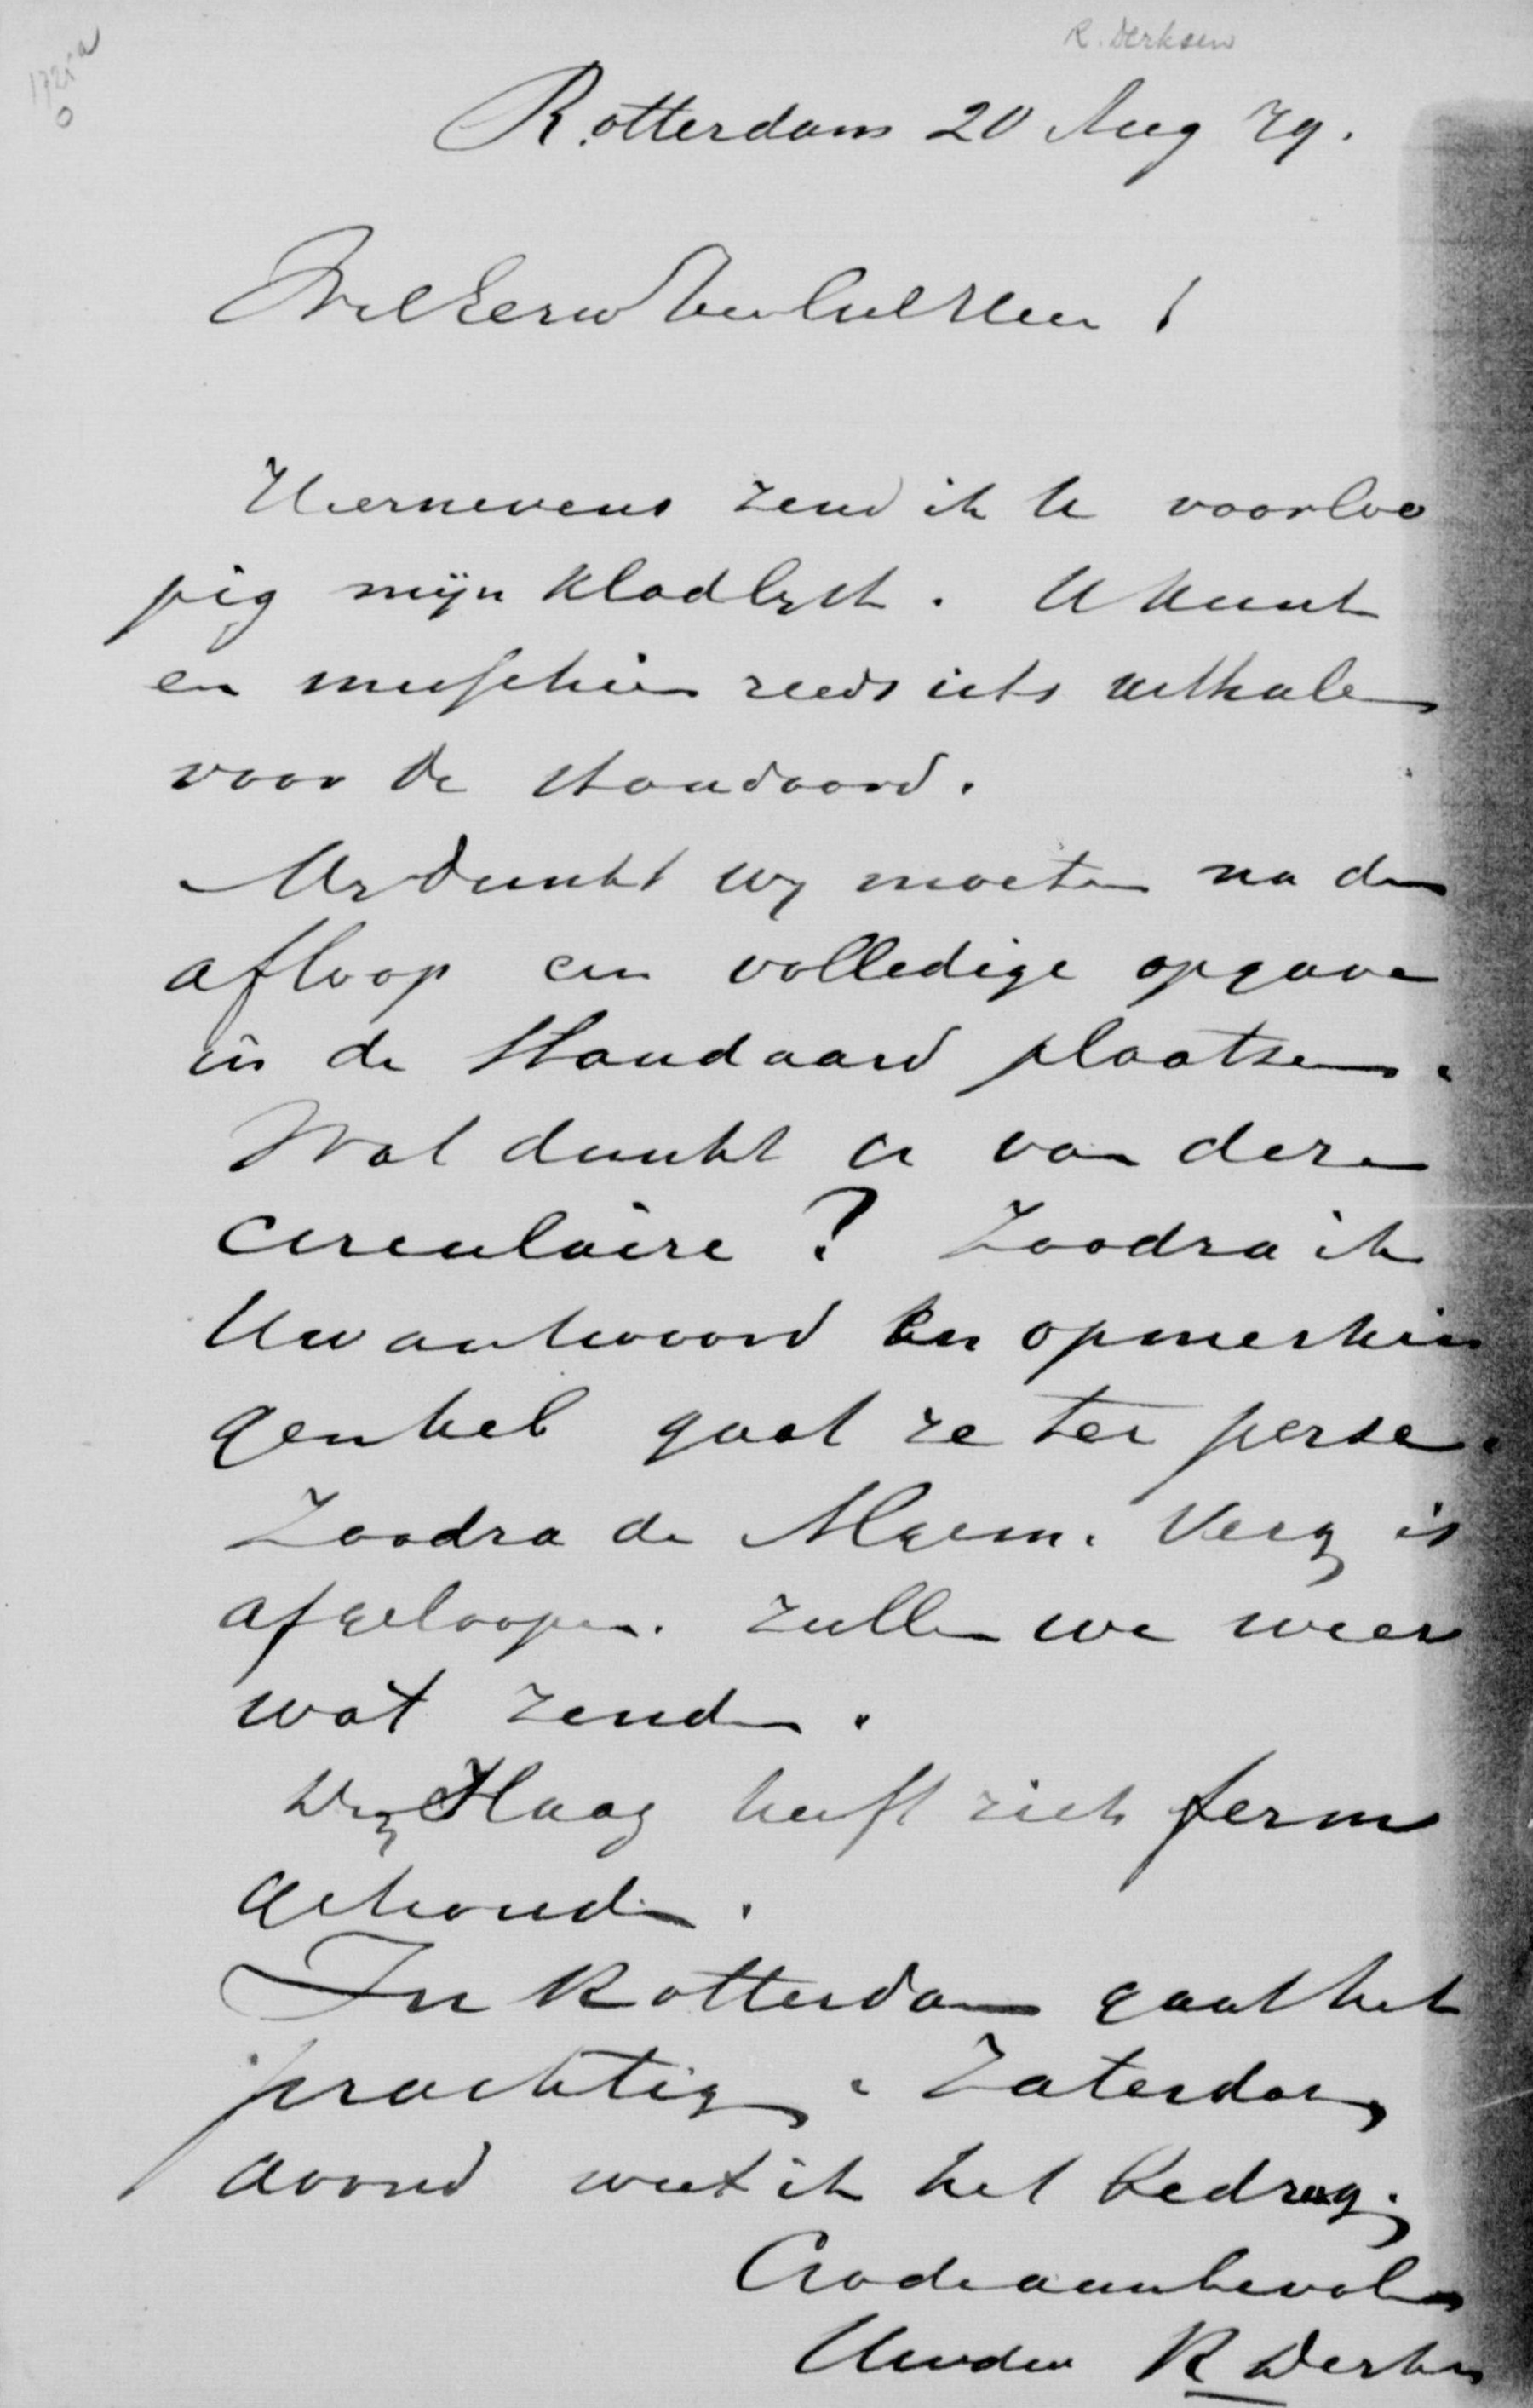 R. Derksen
Rotterdam 20 Aug 79.
WelEerw
Hiernevens zend ik U voorloo
pig mijn kladlyst. U kunt
er misschien reeds iets uithalen
voor de standaard.
My dunkt wy moeten na den
afloop een volledige opgave
in de Standaard plaatsen.
Wat dunkt U van deze
circulaire? Zoodra ik
Uw antwoord en opmerkin
gen heb gaat ze ter perse.
Zoodra de Algem. Verg is
afgeloopen. zullen we weer
wat zenden.
Haag heeft zich ferm
gehouden.
In Rotterdam gaat het
prachtig. Zaterdag
avond weet ik het bedrag.
Gode aanbevolen
R Derksen